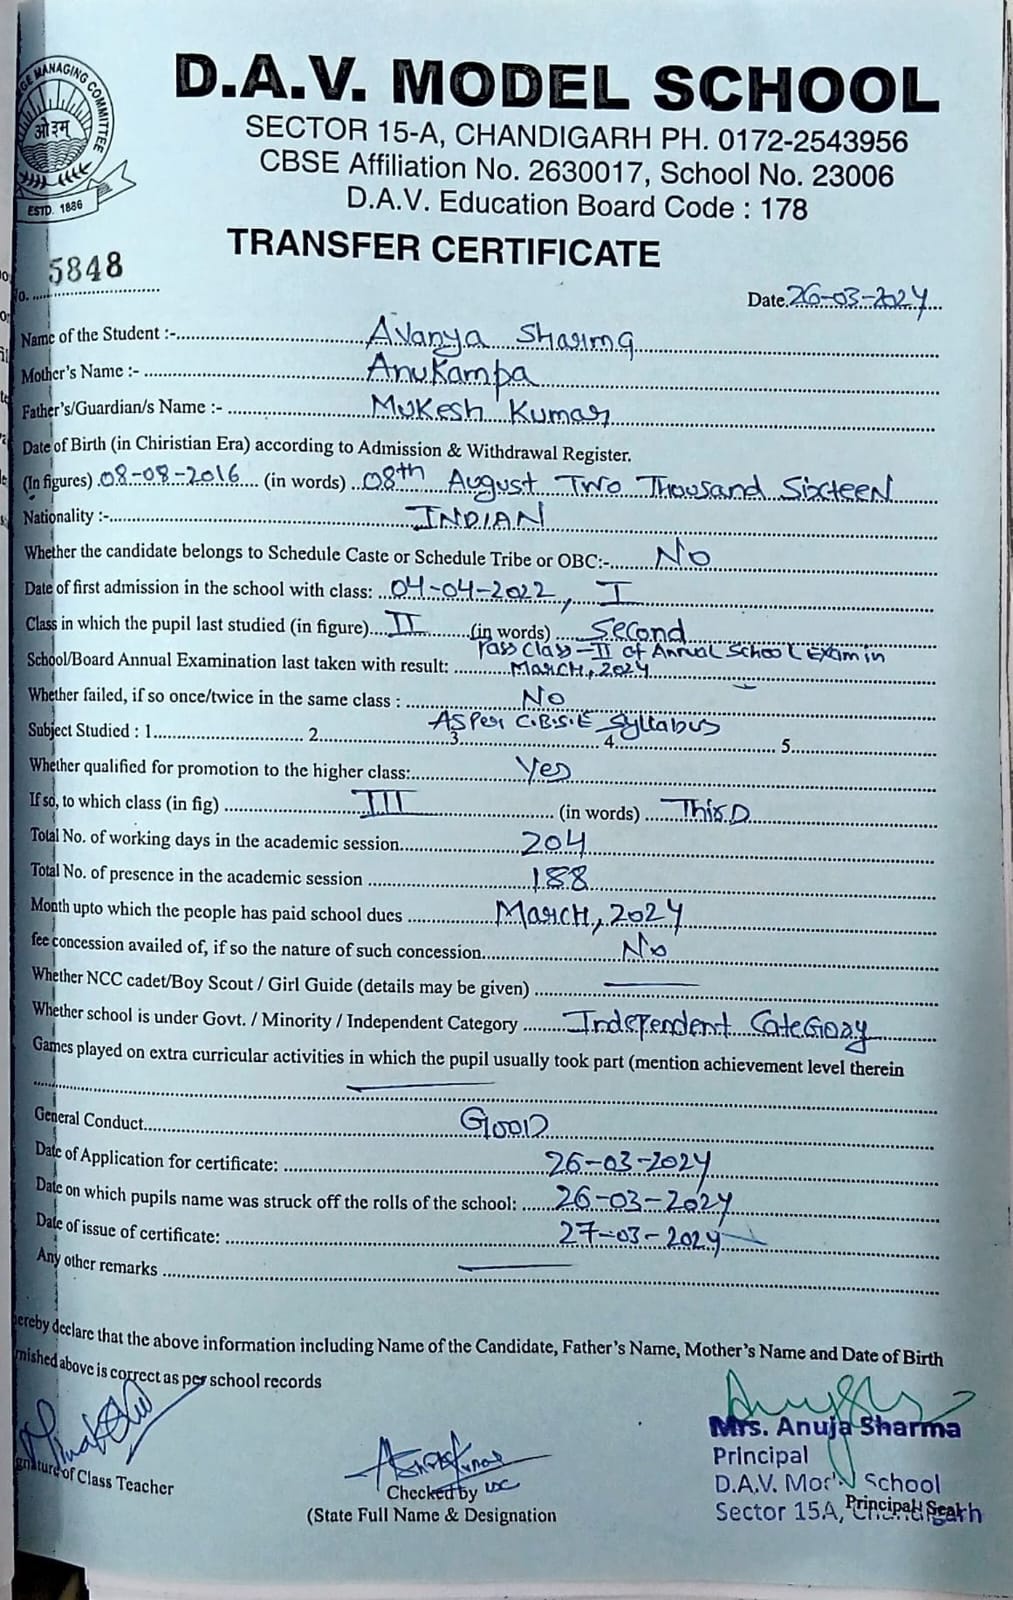 GE MANAGING COMMITTEE
ओ३म्
ESTD. 1886
D.A.V. MODEL SCHOOL
SECTOR 15-A, CHANDIGARH PH. 0172-2543956
CBSE Affiliation No. 2630017, School No. 23006
D.A.V. Education Board Code : 178
TRANSFER CERTIFICATE
No. 5848
Date. 26-03-2024
Name of the Student :- Avanya Sharma
Mother's Name :- Anukampa
Father's/Guardian/s Name :- Mukesh Kumar
Date of Birth (in Chiristian Era) according to Admission & Withdrawal Register.
(In figures) 08-08-2016 (in words) 08th August Two Thousand Sixteen
Nationality :- INDIAN
Whether the candidate belongs to Schedule Caste or Schedule Tribe or OBC:- No
Date of first admission in the school with class: 04-04-2022, I
Class in which the pupil last studied (in figure) II (in words) Second
School/Board Annual Examination last taken with result: Pass Class-II of Annual School Exam in March, 2024
Whether failed, if so once/twice in the same class : No
Subject Studied : 1. 2. 3. 4. 5. As Per C.B.S.E Syllabus
Whether qualified for promotion to the higher class: Yes
If so, to which class (in fig) III (in words) Third
Total No. of working days in the academic session 204
Total No. of presence in the academic session 188
Month upto which the people has paid school dues March, 2024
fee concession availed of, if so the nature of such concession No
Whether NCC cadet/Boy Scout / Girl Guide (details may be given)
Whether school is under Govt. / Minority / Independent Category Independent Category
Games played on extra curricular activities in which the pupil usually took part (mention achievement level therein
General Conduct Good
Date of Application for certificate: 26-03-2024
Date on which pupils name was struck off the rolls of the school: 26-03-2024
Date of issue of certificate: 27-03-2024
Any other remarks
ereby declare that the above information including Name of the Candidate, Father's Name, Mother's Name and Date of Birth
nished above is correct as per school records
Mrs. Anuja Sharma
Principal
D.A.V. Model School
Sector 15A, Chandigarh
Principal Seal
gnature of Class Teacher
Checked by
(State Full Name & Designation